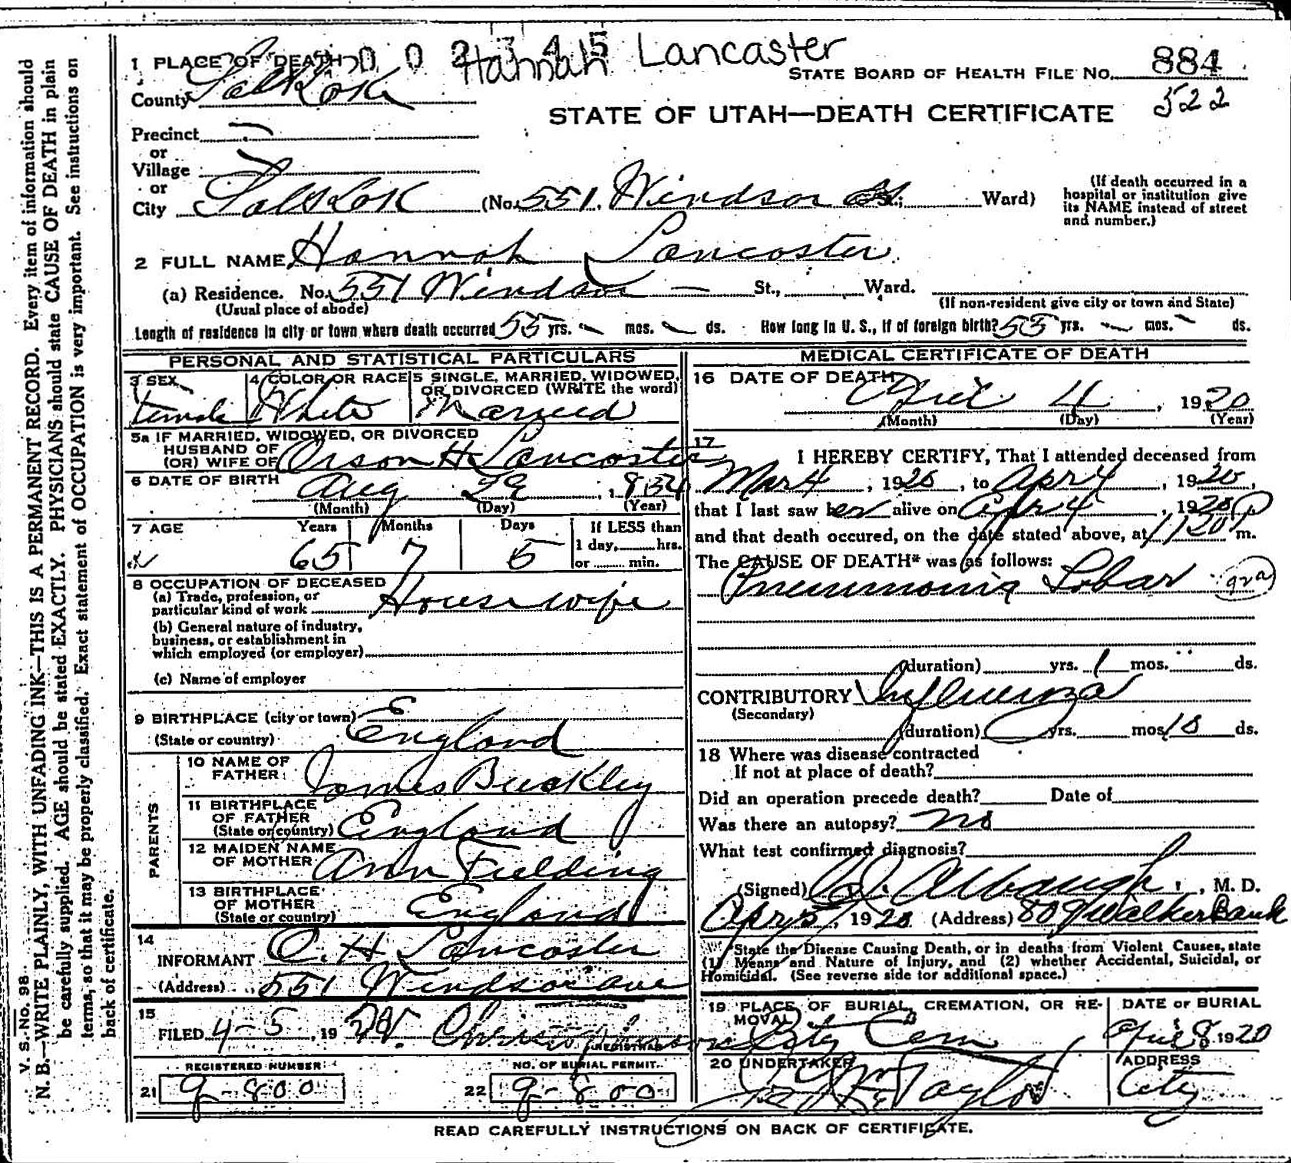 002345 Hannah Lancaster
1 PLACE OF DEATH
STATE BOARD OF HEALTH FILE NO. 884
522
County Salt Lake
STATE OF UTAH—DEATH CERTIFICATE
Precinct
or
Village
or
City Salt Lake (No. 551 Windsor St.; Ward)
(If death occurred in a hospital or institution give its NAME instead of street and number.)
2 FULL NAME Hannah Lancaster
(a) Residence. No. 551 Windsor — St., Ward.
(Usual place of abode)
(If non-resident give city or town and State)
Length of residence in city or town where death occurred 55 yrs. – mos. – ds. How long in U. S., if of foreign birth? 55 yrs. – mos. – ds.
PERSONAL AND STATISTICAL PARTICULARS
3 SEX
Female
4 COLOR OR RACE
White
5 SINGLE, MARRIED, WIDOWED, OR DIVORCED (WRITE the word)
Married
5a IF MARRIED, WIDOWED, OR DIVORCED
HUSBAND OF
(OR) WIFE OF Orson H. Lancaster
6 DATE OF BIRTH Aug 29, 1
(Month) (Day) (Year)
7 AGE Years Months Days
65 7 5
If LESS than 1 day, hrs. or min.
8 OCCUPATION OF DECEASED
(a) Trade, profession, or particular kind of work Housewife
(b) General nature of industry, business, or establishment in which employed (or employer)
(c) Name of employer
9 BIRTHPLACE (city or town)
(State or country) England
PARENTS
10 NAME OF FATHER James Buckley
11 BIRTHPLACE OF FATHER (State or country) England
12 MAIDEN NAME OF MOTHER Ann Fielding
13 BIRTHPLACE OF MOTHER (State or country) England
14
INFORMANT O. H. Lancaster
(Address) 551 Windsor ave
15
FILED 4-5, 19 20 W. Christophersen
REGISTRAR
REGISTERED NUMBER
21 9-800
NO. OF BURIAL PERMIT.
22 9-800
MEDICAL CERTIFICATE OF DEATH
16 DATE OF DEATH
April 4, 1920
(Month) (Day) (Year)
17
I HEREBY CERTIFY, That I attended deceased from
Mar 4, 1920, to Apr 4, 1920,
that I last saw her alive on Apr 4, 1920
and that death occured, on the date stated above, at 1120 P m.
The CAUSE OF DEATH* was as follows:
Pneumonia Lobar
(duration) yrs. 1 mos. ds.
CONTRIBUTORY Influenza
(Secondary)
(duration) yrs. mos. 10 ds.
18 Where was disease contracted
If not at place of death?
Did an operation precede death? Date of
Was there an autopsy? no
What test confirmed diagnosis?
(Signed) Albaugh, M. D.
Apr 5, 1920 (Address) 809 Walker Bank
State the Disease Causing Death, or in deaths from Violent Causes, state
(1) Means and Nature of Injury, and (2) whether Accidental, Suicidal, or
Homicidal. (See reverse side for additional space.)
19 PLACE OF BURIAL, CREMATION, OR REMOVAL
City Cem
DATE OF BURIAL
April 8 1920
20 UNDERTAKER
Taylor
ADDRESS
City
READ CAREFULLY INSTRUCTIONS ON BACK OF CERTIFICATE.
V. S. No. 98
N. B.—WRITE PLAINLY, WITH UNFADING INK—THIS IS A PERMANENT RECORD. Every item of information should
be carefully supplied. AGE should be stated EXACTLY. PHYSICIANS should state CAUSE OF DEATH in plain
terms, so that it may be properly classified. Exact statement of OCCUPATION is very important. See instructions on
back of certificate.